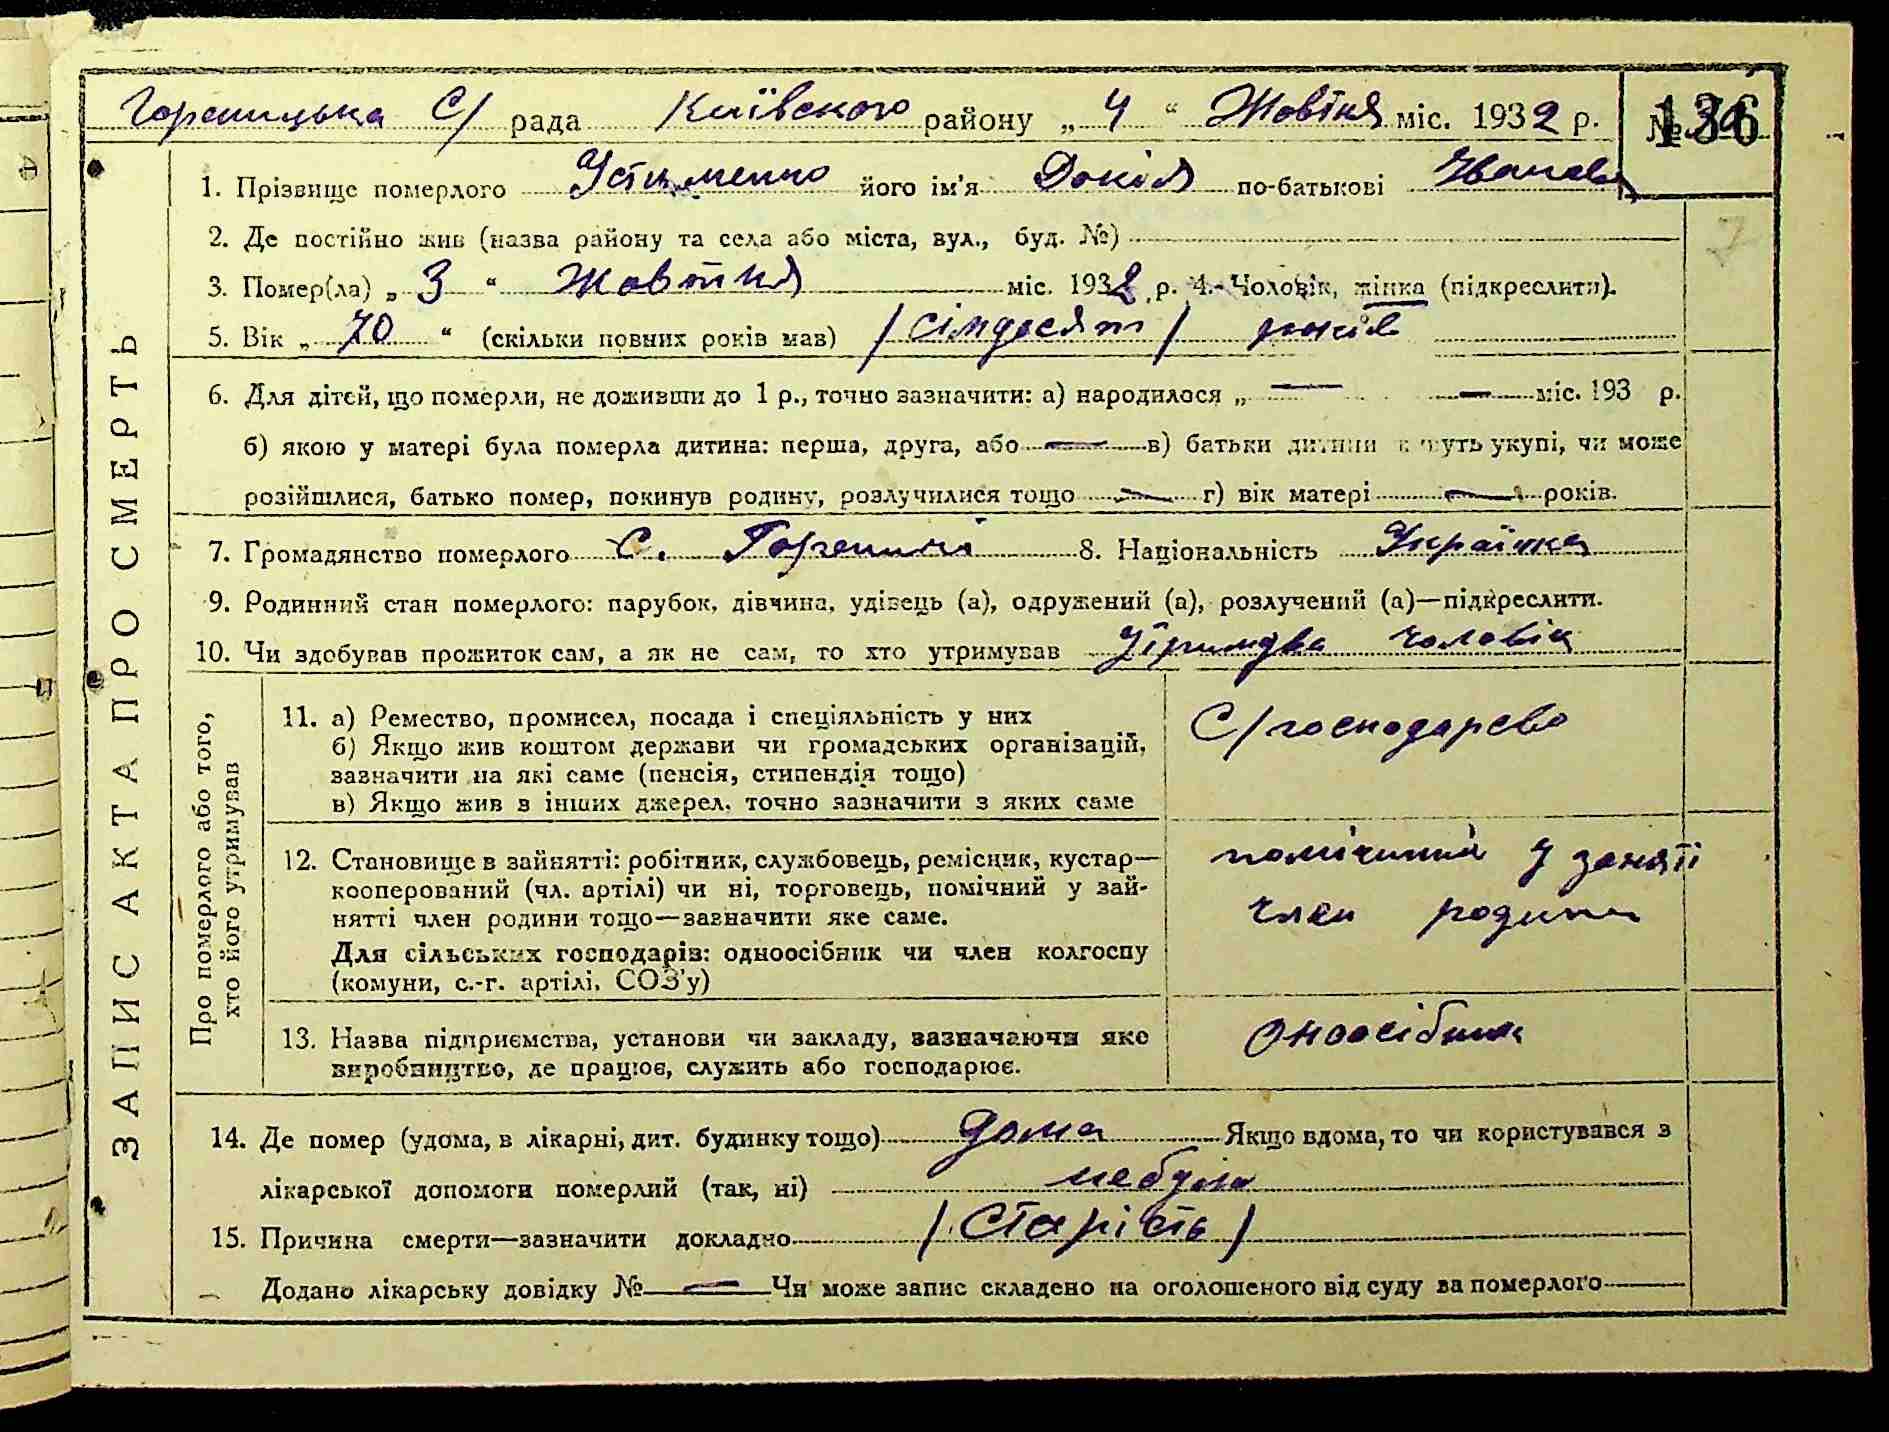 Гореницька С/ рада Київского району „ 4 “ Жовтня міс. 1932 р. № 136
1. Прізвище померлого Устименко його ім'я Докія по-батькові Іванов
2. Де постійно жив (назва району та села або міста, вул., буд. №)
3. Помер(ла) „ 3 “ Жовтня міс. 1932 р. 4. Чоловік, жінка (підкреслити).
5. Вік „ 70 “ (скільки повних років мав) /сімдесят/ років
6. Для дітей, що померли, не доживши до 1 р., точно зазначити: а) народилося „ — — міс. 193 р.
б) якою у матері була померла дитина: перша, друга, або — в) батьки дитини живуть укупі, чи може
розійшлися, батько помер, покинув родину, розлучилися тощо — г) вік матері — років.
7. Громадянство померлого С. Гореничі 8. Національність Українка
9. Родинний стан померлого: парубок, дівчина, удівець (а), одружений (а), розлучений (а)—підкреслити.
10. Чи здобував прожиток сам, а як не сам, то хто утримував чоловік
ЗАПИС АКТА ПРО СМЕРТЬ
Про померлого або того,
хто його утримував
11. а) Ремество, промисел, посада і спеціяльність у них
б) Якщо жив коштом держави чи громадських організацій,
зазначити на які саме (пенсія, стипендія тощо)
в) Якщо жив з інших джерел, точно зазначити з яких саме
С/господарсво
12. Становище в зайнятті: робітник, службовець, ремісник, кустар—
кооперований (чл. артілі) чи ні, торговець, помічний у зай-
нятті член родини тощо—зазначити яке саме.
Для сільських господарів: одноосібник чи член колгоспу
(комуни, с.-г. артілі, СОЗ'у)
помічний у заняті
член родини
13. Назва підприємства, установи чи закладу, зазначаючи яке
виробництво, де працює, служить або господарює.
Оноосібник
14. Де помер (удома, в лікарні, дит. будинку тощо) дома Якщо вдома, то чи користувався з
лікарської допомоги померлий (так, ні) небула
15. Причина смерти—зазначити докладно /Старість/
Додано лікарську довідку № — Чи може запис складено на оголошеного від суду за померлого